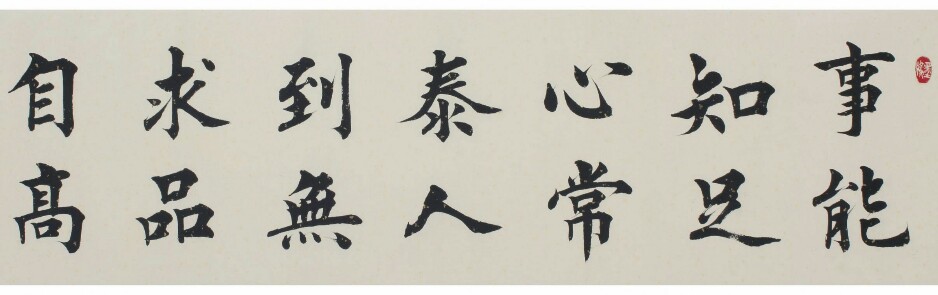 事能
知足
心常
泰人
到無
求品
自髙